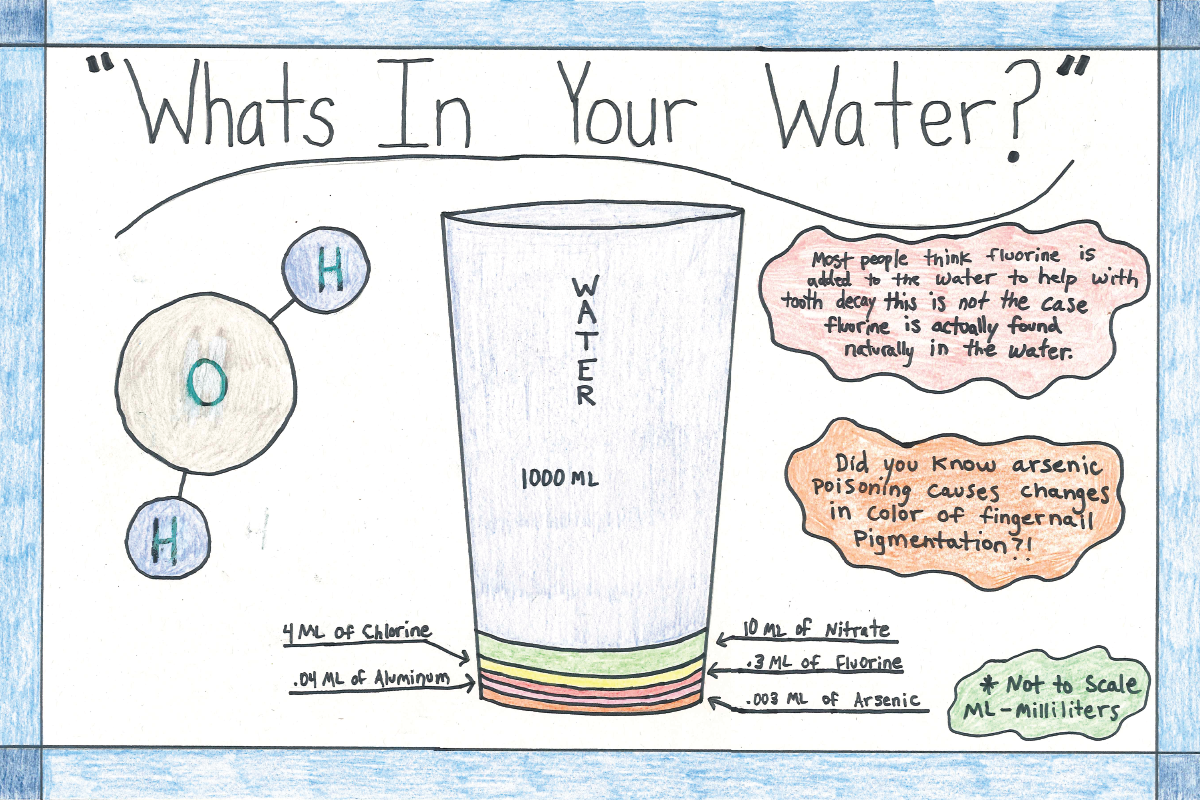 "Whats In Your Water?"
H
O
H
WATER
1000 ML
Most people think fluorine is
added to the water to help with
tooth decay this is not the case
fluorine is actually found
naturally in the water.
Did you know arsenic
poisoning causes changes
in color of fingernail
Pigmentation?!
4 ML of Chlorine
.04 ML of Aluminum
10 ML of Nitrate
.3 ML of Fluorine
.003 ML of Arsenic
* Not to Scale
ML-Milliliters